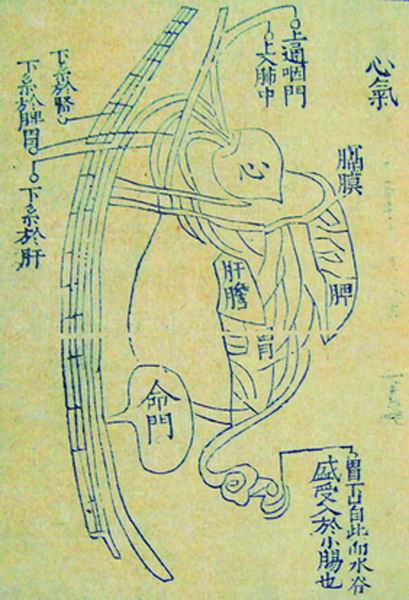 心氣
上通咽門
上入肺中
下系於腎
下系於脾胃
下系於肝
膈膜
心
脾
肝膽
胃
命門
胃下口自此而水谷
盛受入於小腸也